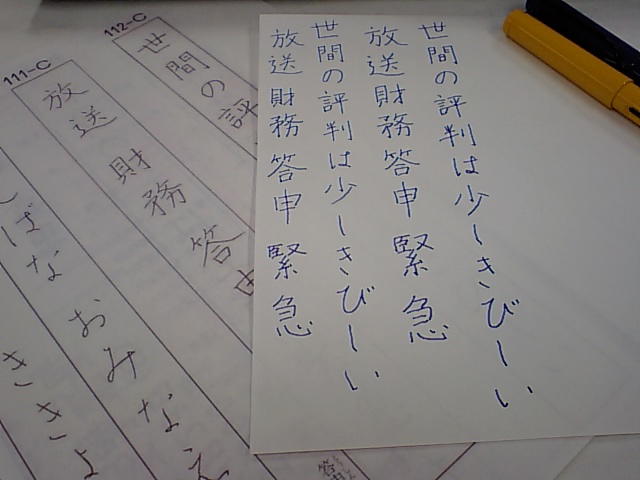 世間の評判は少しきびしい
放送財務答申緊急
世間の評判は少しきびしい
放送財務答申緊急
112-C
世間の評
111-C
放送財務答申
ばなおみなえ
ききょ